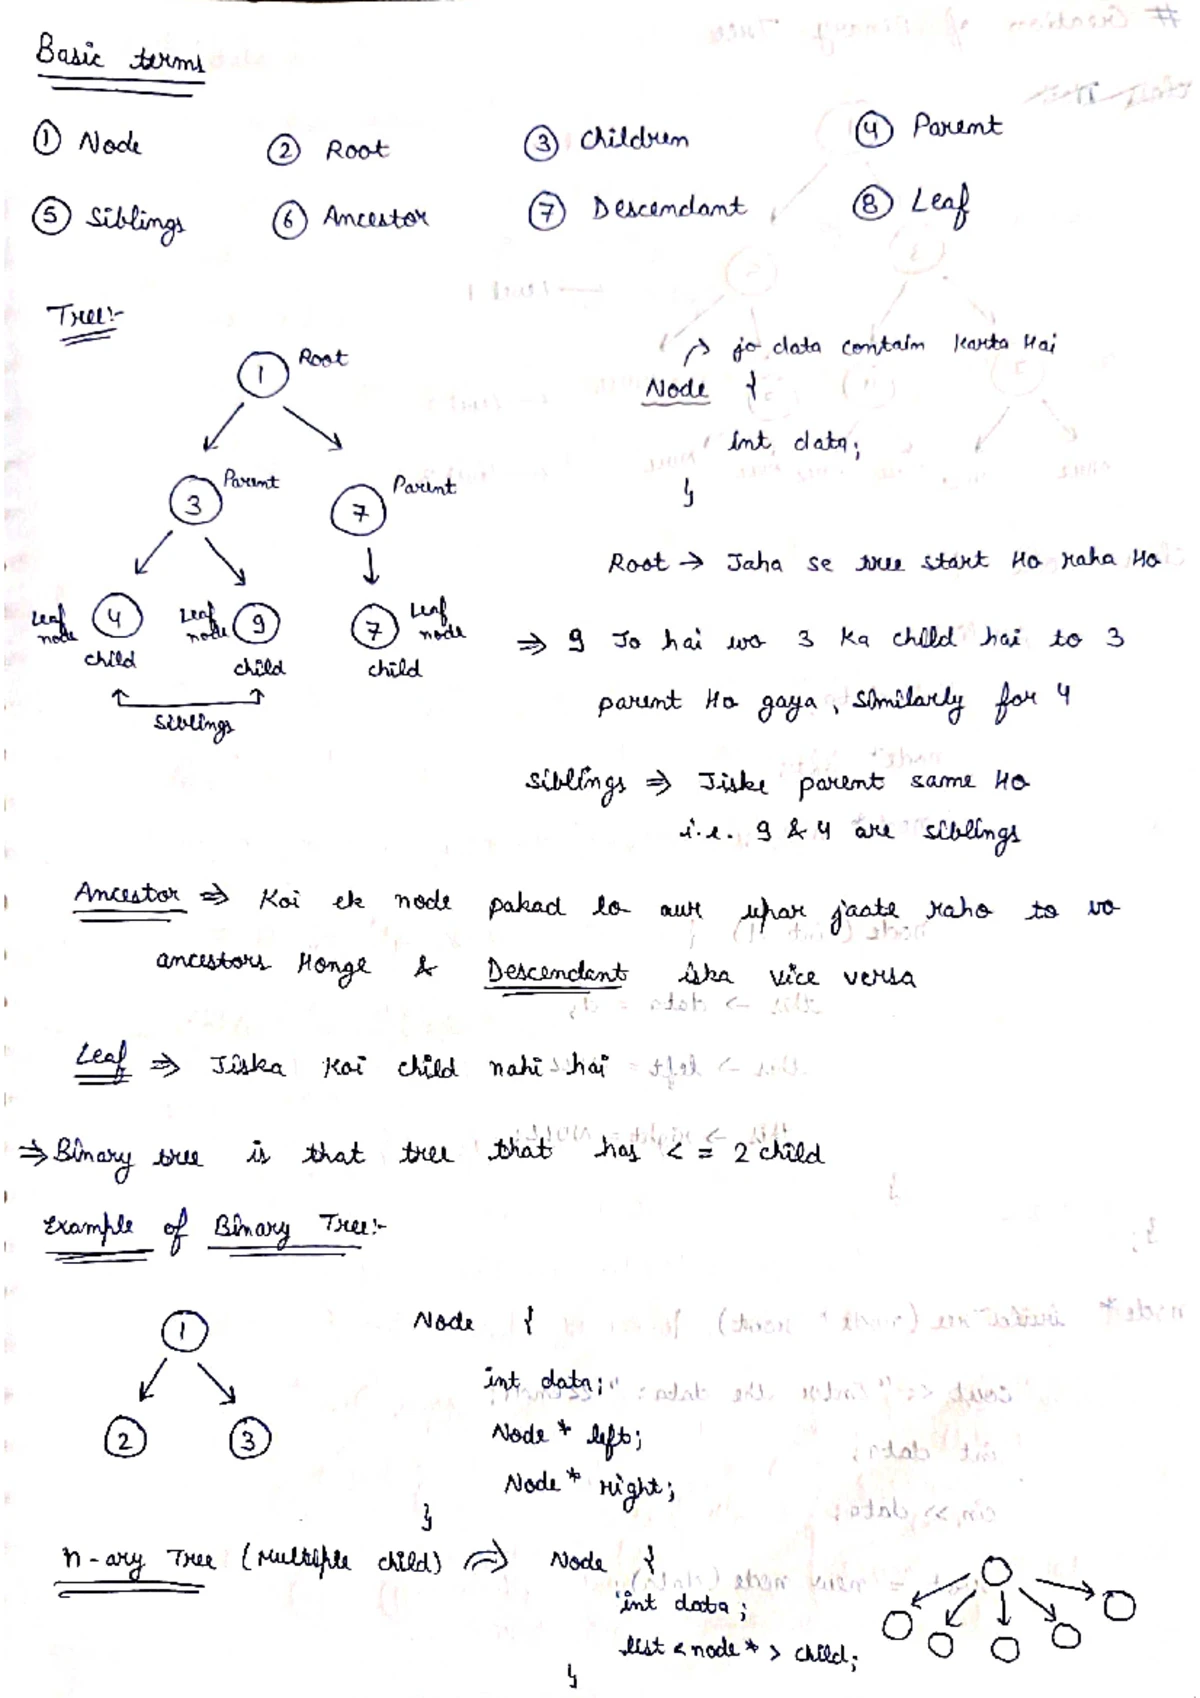 Basic terms
① Node ② Root ③ Children ④ Parent
⑤ Siblings ⑥ Ancestor ⑦ Descendant ⑧ Leaf
Tree:-
1 Root
3 Parent 7 Parent
Leaf node 4 Leaf node 9 7 Leaf node
child child child
Siblings
→ jo data contain karta Hai
Node {
int data;
}
Root → Jaha se tree start Ho raha Ho
⇒ 9 Jo hai wo 3 Ka child hai to 3
parent Ho gaya, similarly for 4
Siblings ⇒ Jiske parent same Ho
i.e. 9 & 4 are siblings
Ancestor ⇒ Koi ek node pakad lo aur upar jaate raho to vo
ancestors Honge & Descendant iska vice versa
Leaf ⇒ Jiska Koi child nahi hai
⇒ Binary tree is that tree that has < = 2 child
Example of Binary Tree:-
1
2 3
Node {
int data;
Node * left;
Node * right;
}
n-ary Tree (Multiple child) ⇒ Node {
int data;
list < node * > child;
}